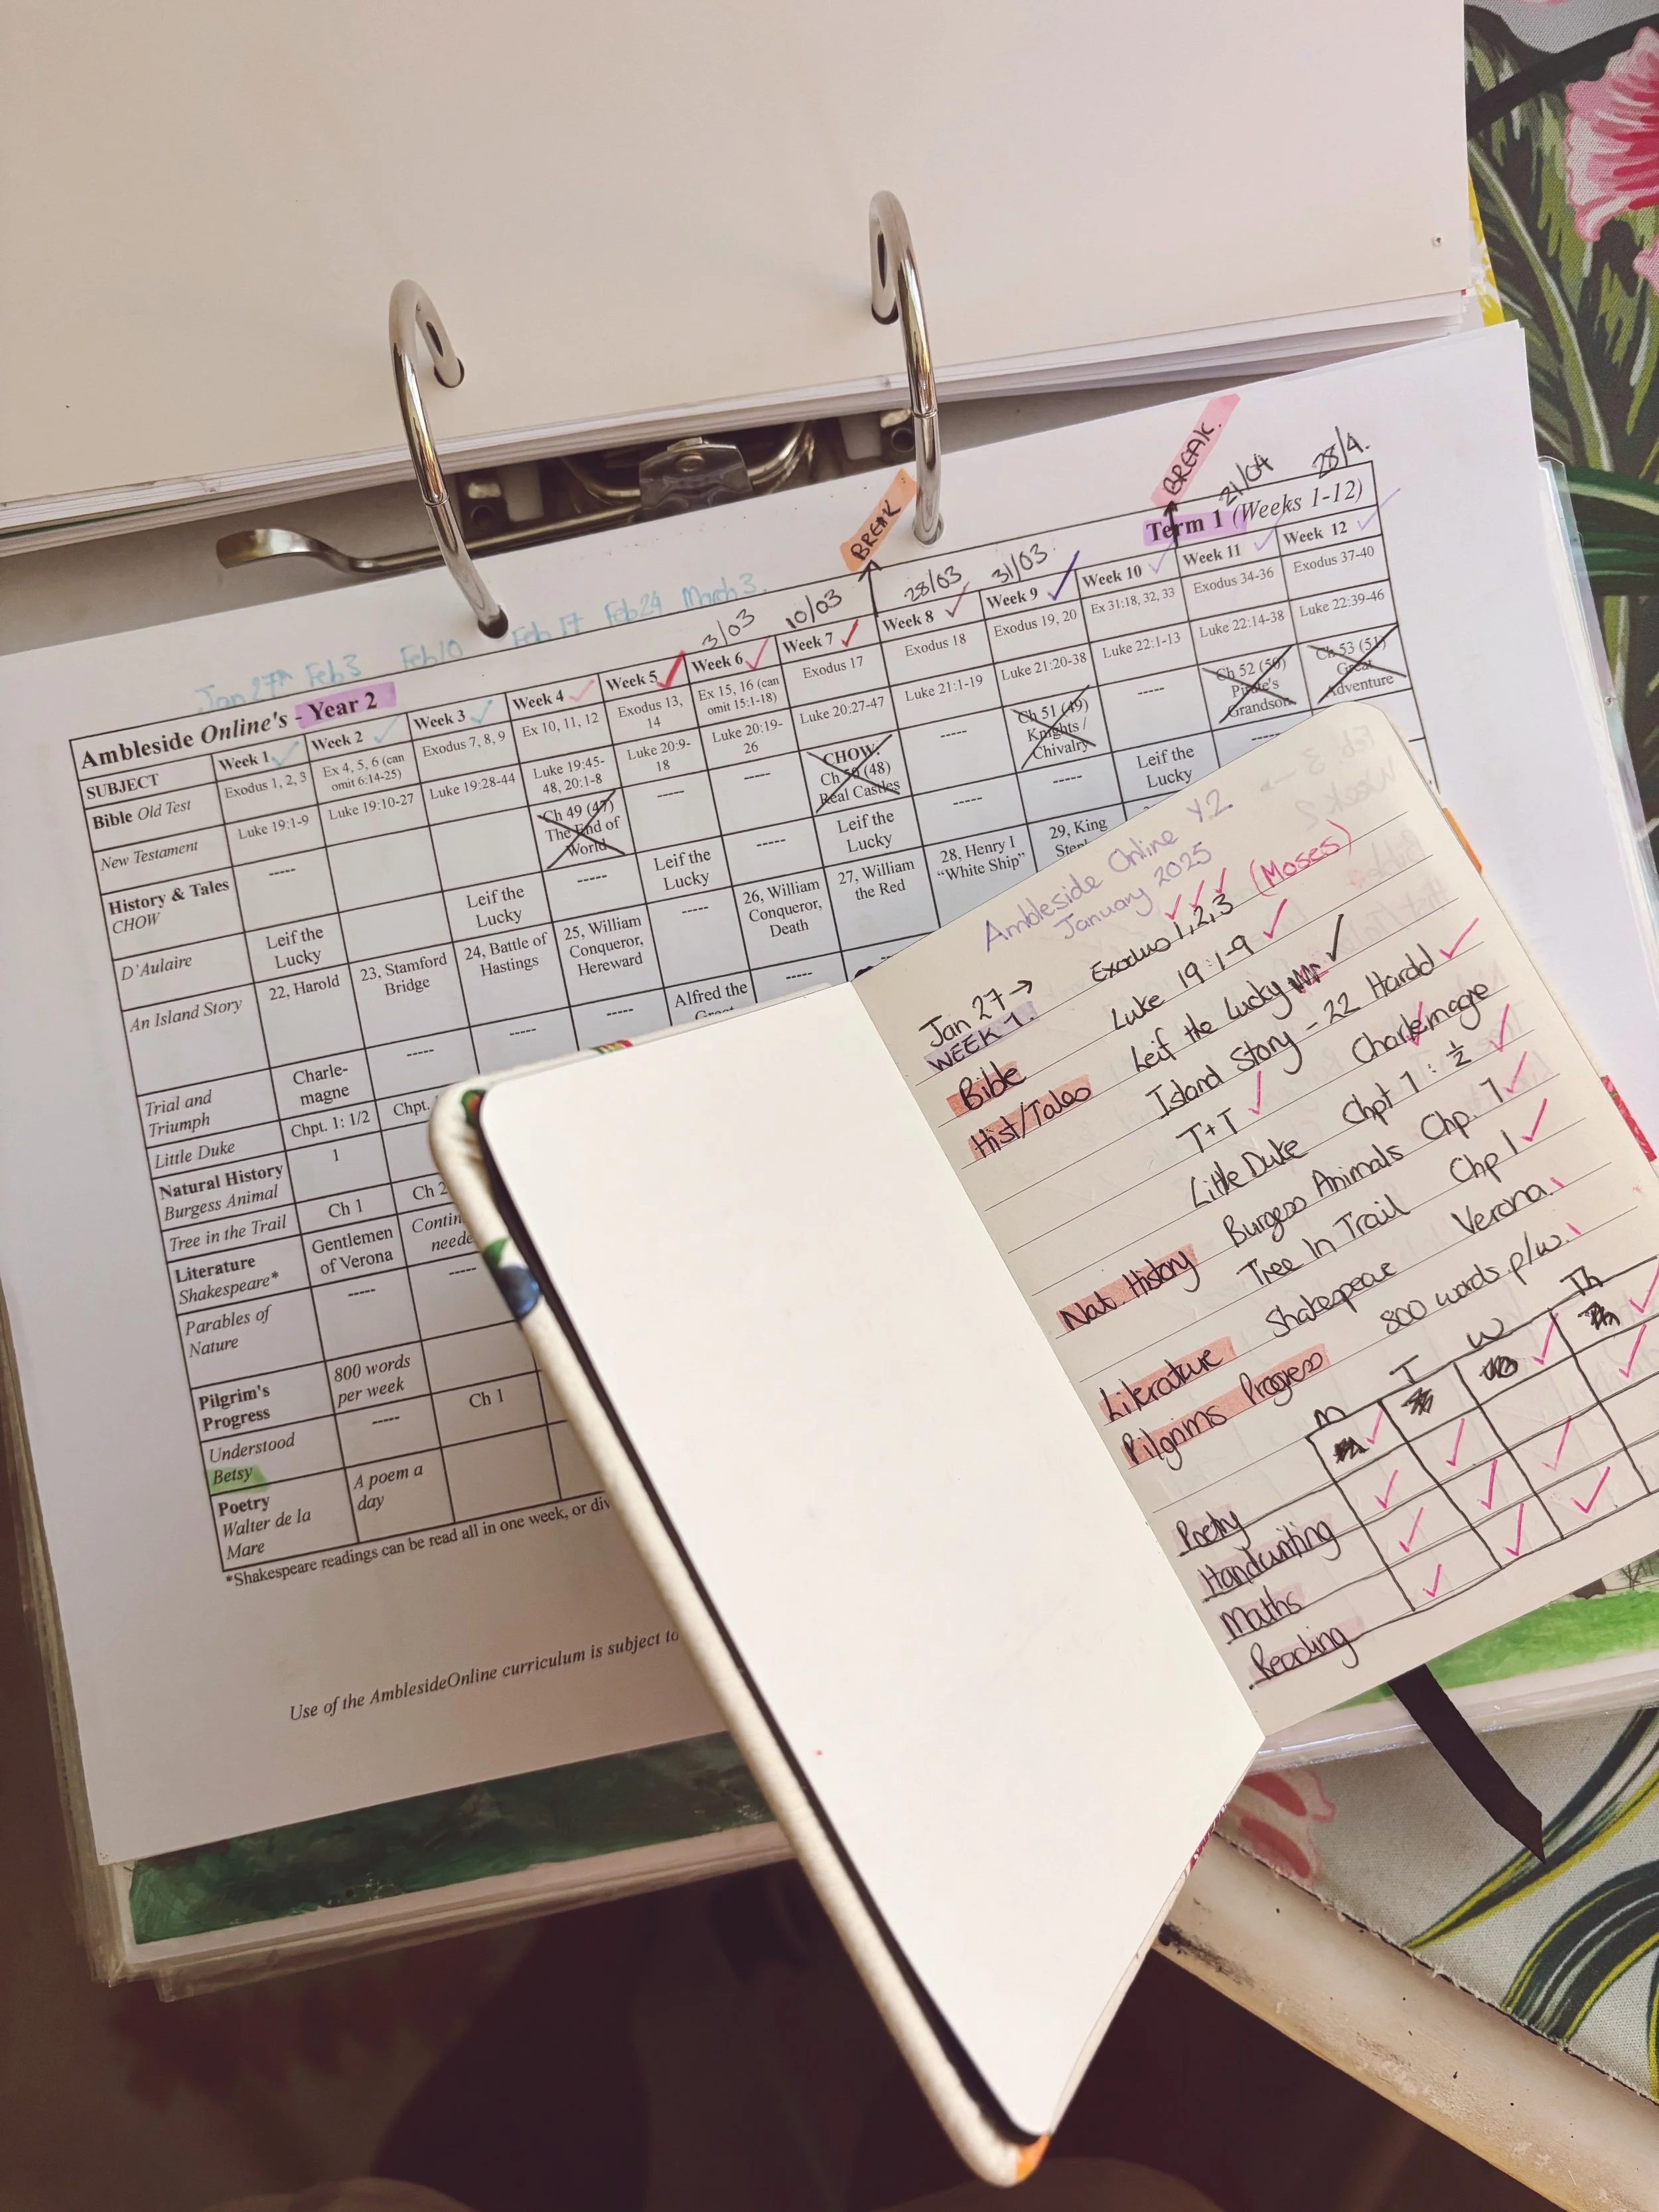 BREAK.
21/04
28/4.
BREAK
Jan 27th Feb 3 Feb 10 Feb 17 Feb 24 March 3.
3/03 10/03 28/03 31/03
Ambleside Online's - Year 2
Term 1 (Weeks 1-12)
SUBJECT Week 1 Week 2 Week 3 Week 4 Week 5 Week 6 Week 7 Week 8 Week 9 Week 10 Week 11 Week 12
Bible Old Test Exodus 1, 2, 3 Ex 4, 5, 6 (can omit 6:14-25) Exodus 7, 8, 9 Ex 10, 11, 12 Exodus 13, 14 Ex 15, 16 (can omit 15:1-18) Exodus 17 Exodus 18 Exodus 19, 20 Ex 31:18, 32, 33 Exodus 34-36 Exodus 37-40
New Testament Luke 19:1-9 Luke 19:10-27 Luke 19:28-44 Luke 19:45-48, 20:1-8 Luke 20:9-18 Luke 20:19-26 Luke 20:27-47 Luke 21:1-19 Luke 21:20-38 Luke 22:1-13 Luke 22:14-38 Luke 22:39-46
History & Tales
CHOW ----- Ch 49 (47) The End of World ----- ----- CHOW: Ch 50 (48) Real Castles ----- Ch 51 (49) Knights / Chivalry ----- Ch 52 (50) Pirate's Grandson Ch 53 (51) Great Adventure
D'Aulaire Leif the Lucky Leif the Lucky ----- Leif the Lucky ----- Leif the Lucky ----- ----- Leif the Lucky
An Island Story 22, Harold 23, Stamford Bridge 24, Battle of Hastings 25, William Conqueror, Hereward ----- 26, William Conqueror, Death 27, William the Red 28, Henry I "White Ship" 29, King
Trial and Triumph Charle-magne ----- ----- ----- Alfred the -----
Little Duke Chpt. 1: 1/2 Chpt.
Natural History
Burgess Animal 1
Tree in the Trail Ch 1 Ch 2
Literature
Shakespeare* Gentlemen of Verona
Parables of Nature ----- -----
Pilgrim's Progress 800 words per week
Understood Betsy ----- Ch 1
Poetry
Walter de la Mare A poem a day
*Shakespeare readings can be read all in one week, or
Use of the AmblesideOnline curriculum is subject to
Ambleside Online Y.2
January 2025
Jan 27 → Exodus 1,2,3 (Moses)
WEEK 1.
Bible Luke 19:1-9
Hist/Tales Leif the Lucky
Island Story - 22 Harold
T+T Charlemagne
Little Duke Chpt 1: ½
Burgess Animals Chp. 1
Nat. History Tree In Trail Chp 1
Literature Shakespeare Verona.
Pilgrims Progress 800 words p/w.
M T W Th
Poetry
Handwriting
Maths
Reading